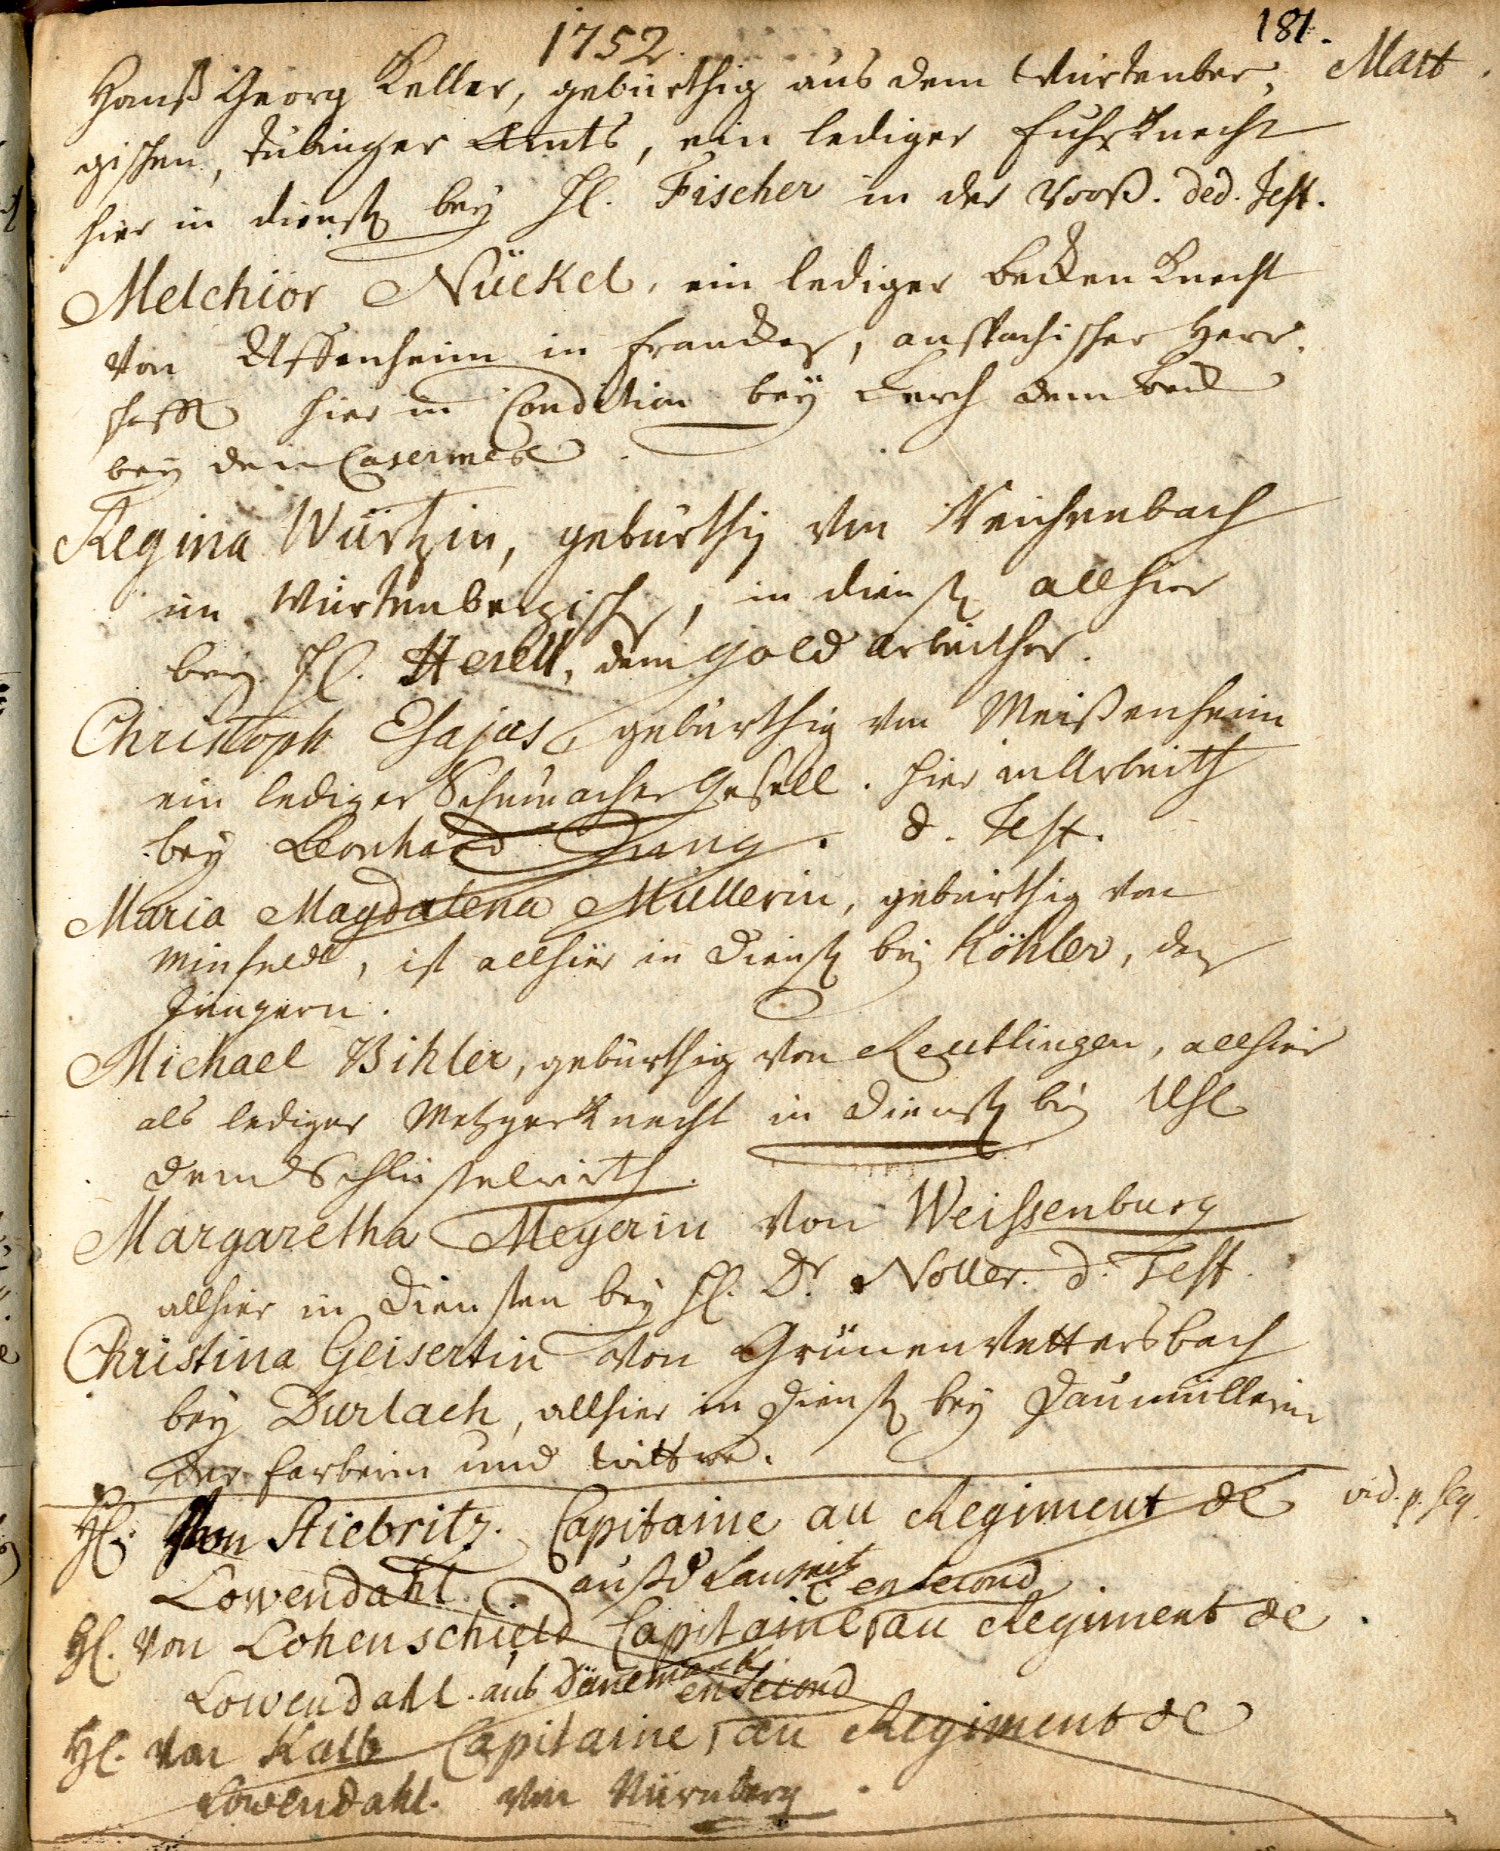 1752.
181.
Mart.
Hanß Georg Keller, gebürthig aus dem Würtenber,
gischen, Tubinger Amts, ein lediger Fuhrknecht
hier in dienst bey H. Fischer in der ded. Test.
Melchior Nückel, ein lediger becken Knecht
von Uffenheim in Francken, anspachischer Herr,
schafft hier in Condition bey Lerch dem beck
bey den Casernes
Regina Würtzin, gebürthig von Reichenbach
im Würtenbergischen, in dienst allhier
bey H. dem gold arbeither.
Christoph Esajas, gebürthig von Meißenheim
ein lediger Schumacher Gesell. hier in Arbeith
bey Leonhard Jung. d. Test.
Maria Magdalena Müllerin, gebürthig von
Minfeldt, ist allhier in Dienst bey Köhler, dem
Jüngern.
Michael Bihler, gebürthig von Reutlingen, allhier
als lediger Metzgerknecht in Dienst bey Uhl
dem Schlüsselwirth.
Margaretha Meyerin von Weissenburg
allhier in Diensten bey H. Dr. Noller. d. Test.
Christina Geisertin von Grünenwettersbach
bey Durlach, allhier in Dienst bey Daumüllerin
der farberin und wittwe.
H. Von Stiebritz. Capitaine au Regiment de
vid. p. seq.
Lowendahl. auß d Lausnitz
en second
H. von Cohenschield Capitaine, au Regiment de
Lowendahl. aus Dänemarck
en second
H. von Kalb Capitaine, au Regiment de
Lowendahl. von Nürnberg